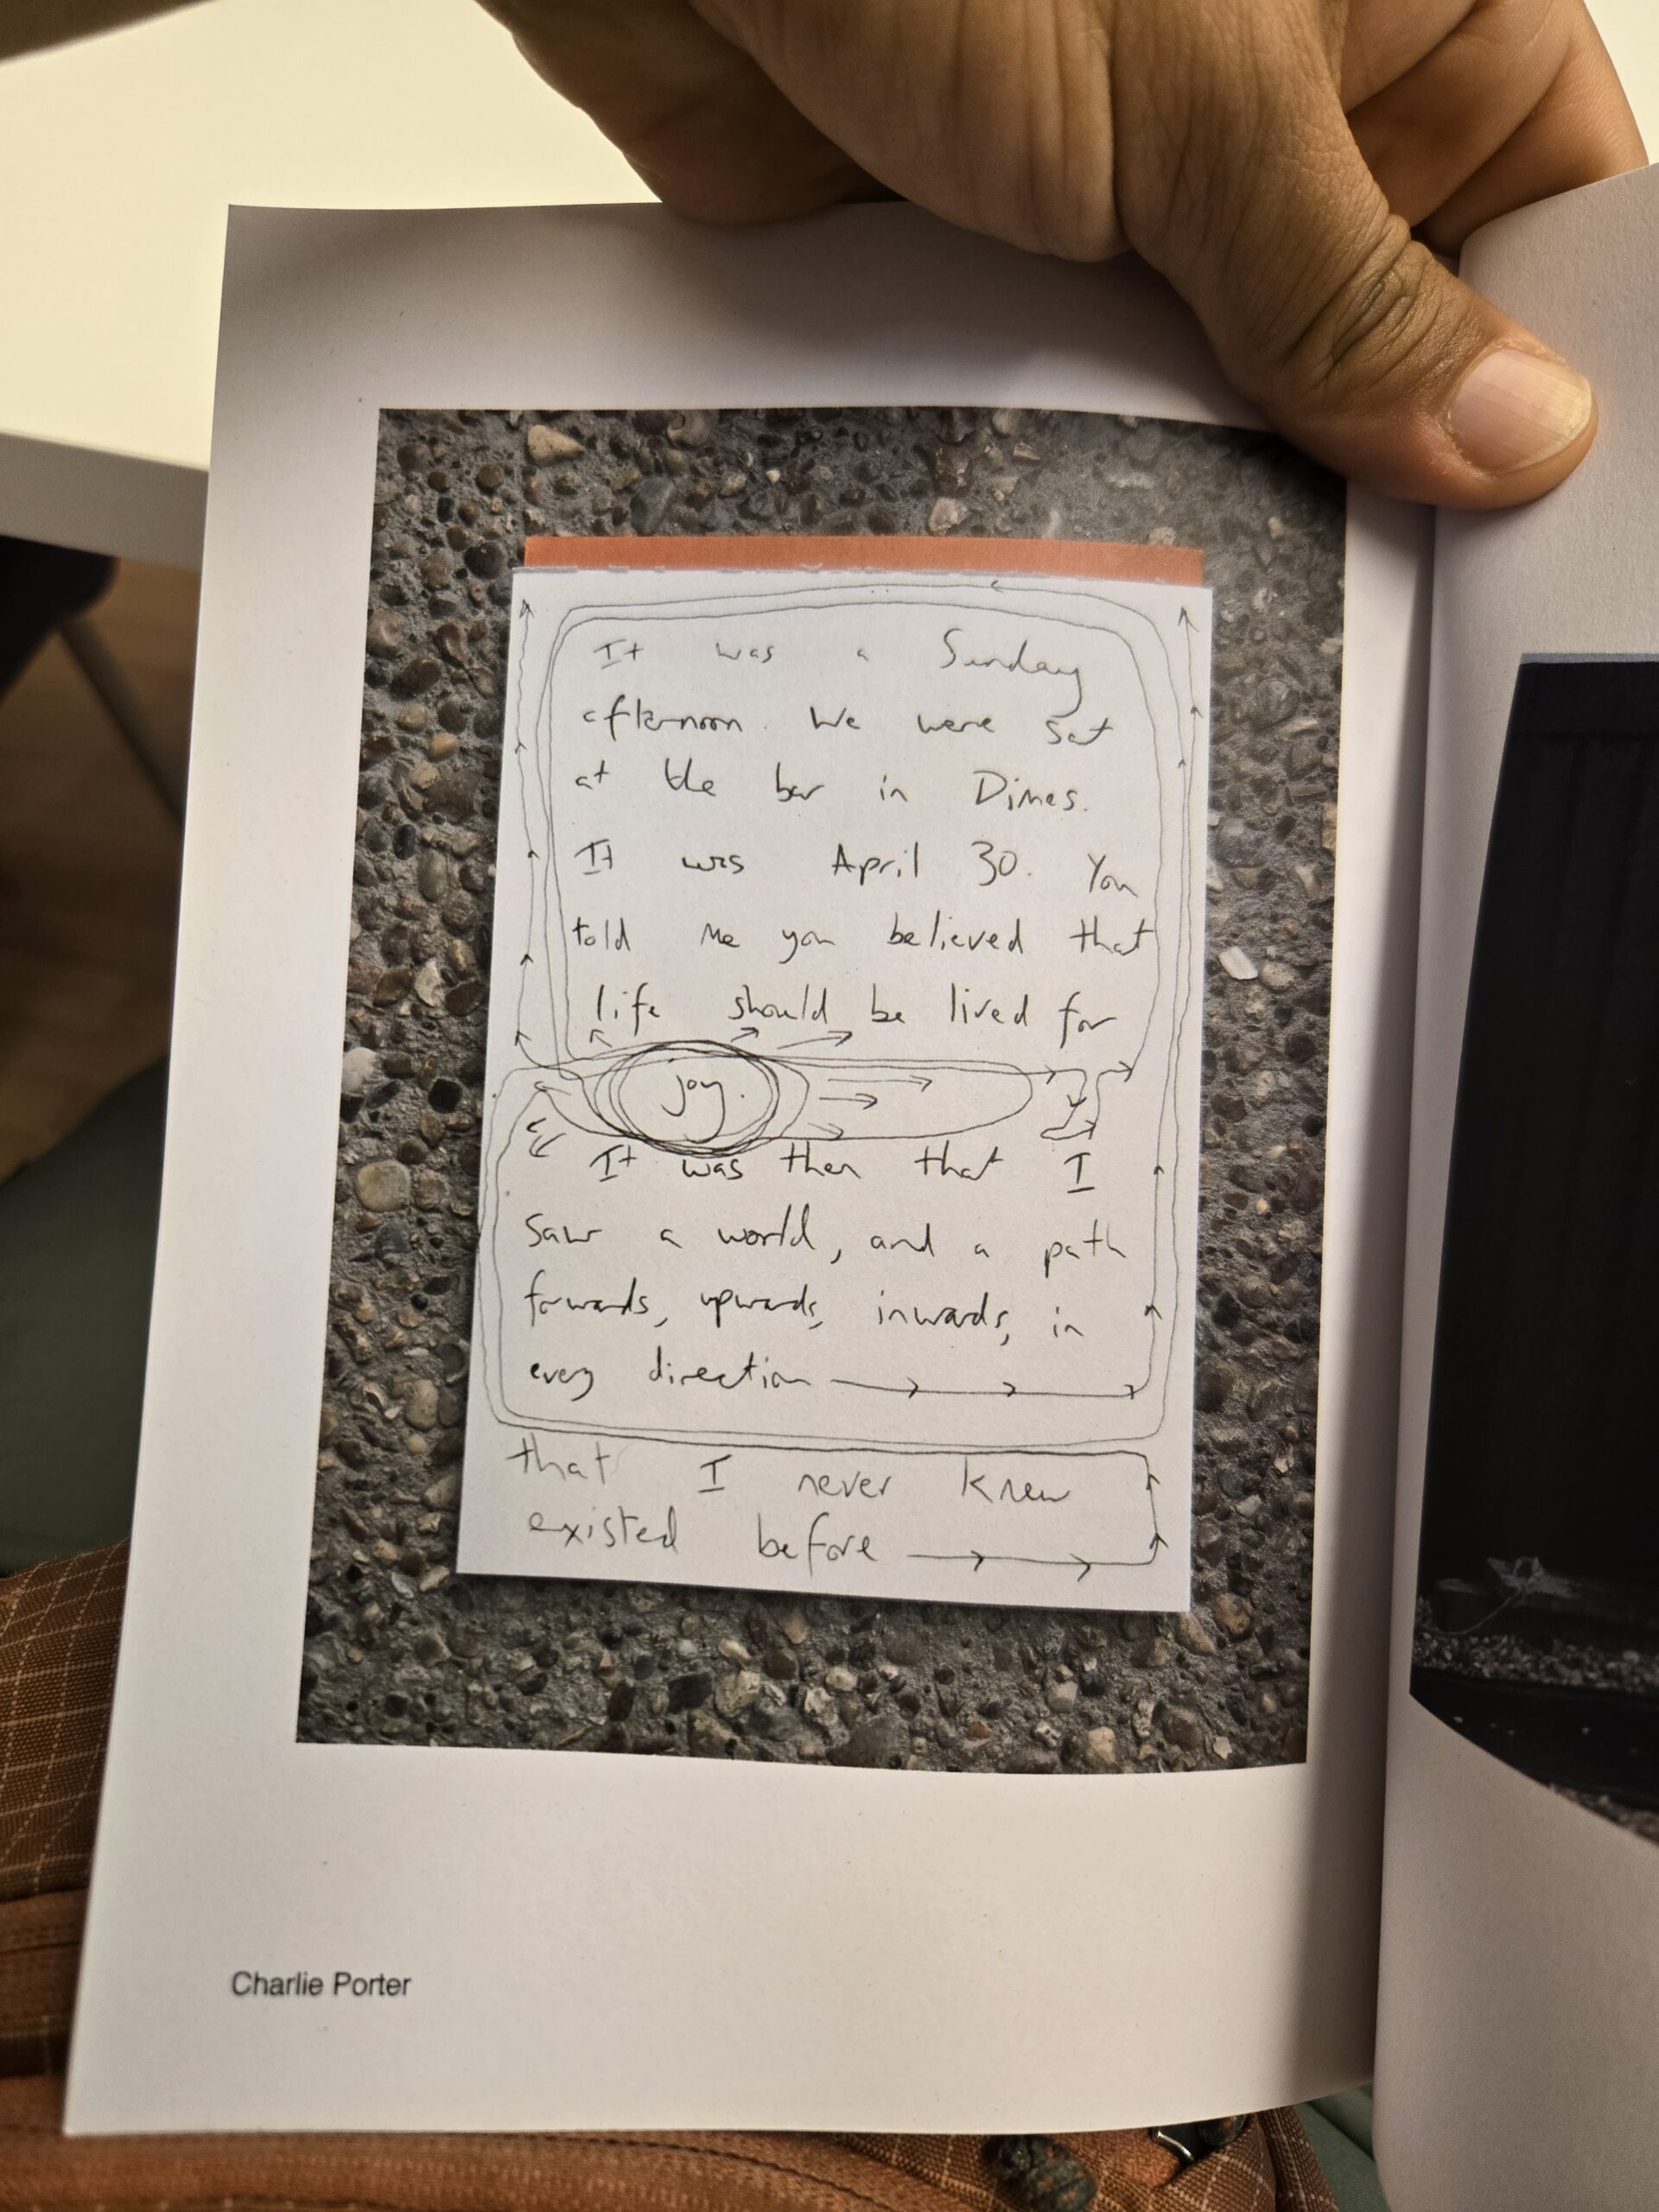 It was a Sunday
afternoon. We were sat
at the bar in Dimes.
It was April 30. You
told me you believed that
life should be lived for
joy.
It was then that I
saw a world, and a path
forwards, upwards, inwards, in
every direction
that I never knew
existed before
Charlie Porter